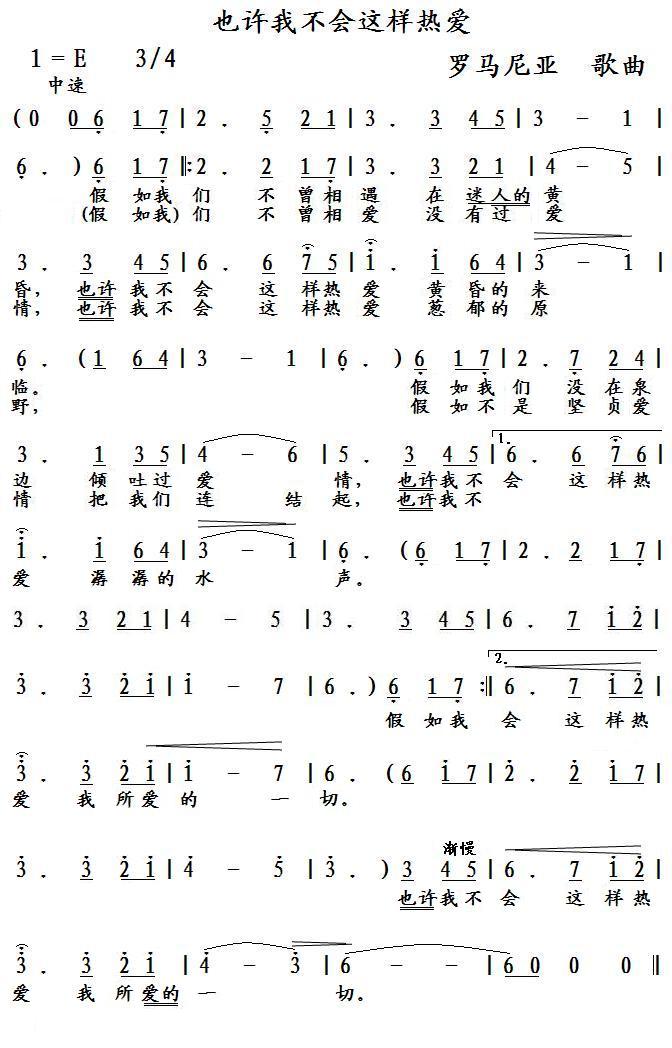 也许我不会这样热爱
1 = E 3/4
罗马尼亚 歌曲
中速
(0 0 6 1 7 | 2 . 5 2 1 | 3 . 3 4 5 | 3 – 1 |
6 . ) 6 1 7 |: 2 . 2 1 7 | 3 . 3 2 1 | 4 – 5 |
假 如我 们 不 曾相 遇 在 迷人的 黄
(假 如我) 们 不 曾相 爱 没 有过 爱
3 . 3 4 5 | 6 . 6 7 5 | 1 . 1 6 4 | 3 – 1 |
昏, 也许 我不 会 这 样热 爱 黄 昏的 来
情, 也许 我不 会 这 样热 爱 葱 郁的 原
6 . (1 6 4 | 3 – 1 | 6 . ) 6 1 7 | 2 . 7 2 4 |
临。 假 如我 们 没 在泉
野, 假 如不 是 坚 贞爱
1.
3 . 1 3 5 | 4 – 6 | 5 . 3 4 5 | 6 . 6 7 6 |
边 倾 吐过 爱 情, 也许我不 会 这 样热
情 把 我们 连 结 起, 也许我不
1 . 1 6 4 | 3 – 1 | 6 . (6 1 7 | 2 . 2 1 7 |
爱 潺 潺的 水 声。
3 . 3 2 1 | 4 – 5 | 3 . 3 4 5 | 6 . 7 1 2 |
2.
3 . 3 2 1 | 1 – 7 | 6 . ) 6 1 7 :|| 6 . 7 1 2 |
假 如我 会 这 样热
3 . 3 2 1 | 1 – 7 | 6 . (6 1 7 | 2 . 2 1 7 |
爱 我 所爱 的 一 切。
渐慢
3 . 3 2 1 | 4 – 5 | 3 . ) 3 4 5 | 6 . 7 1 2 |
也许我不 会 这 样热
3 . 3 2 1 | 4 – 3 | 6 – – | 6 0 0 0 ||
爱 我 所爱的 一 切。